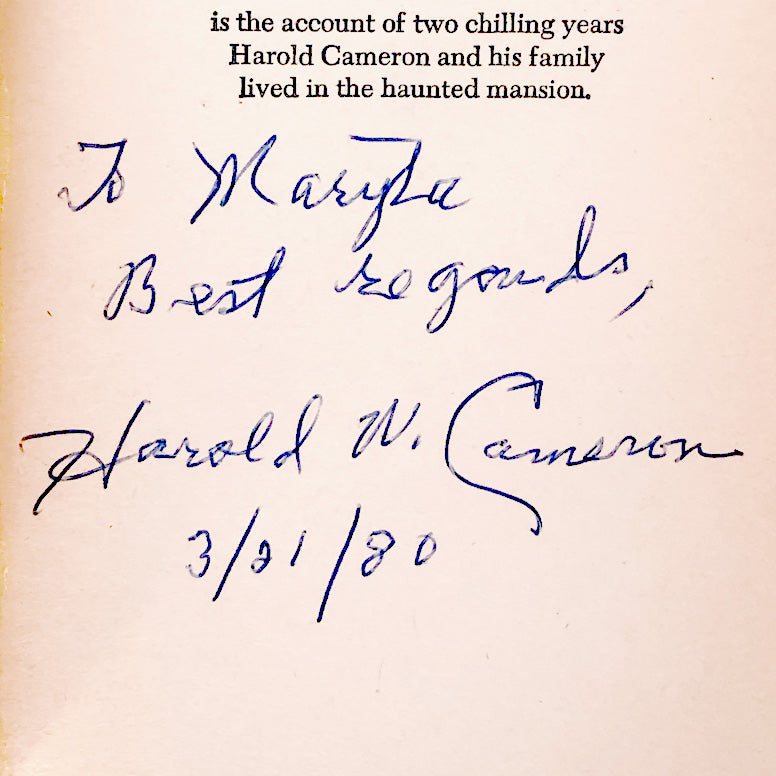 is the account of two chilling years
Harold Cameron and his family
lived in the haunted mansion.
To
Best regards,
Harold W. Cameron
3/21/80